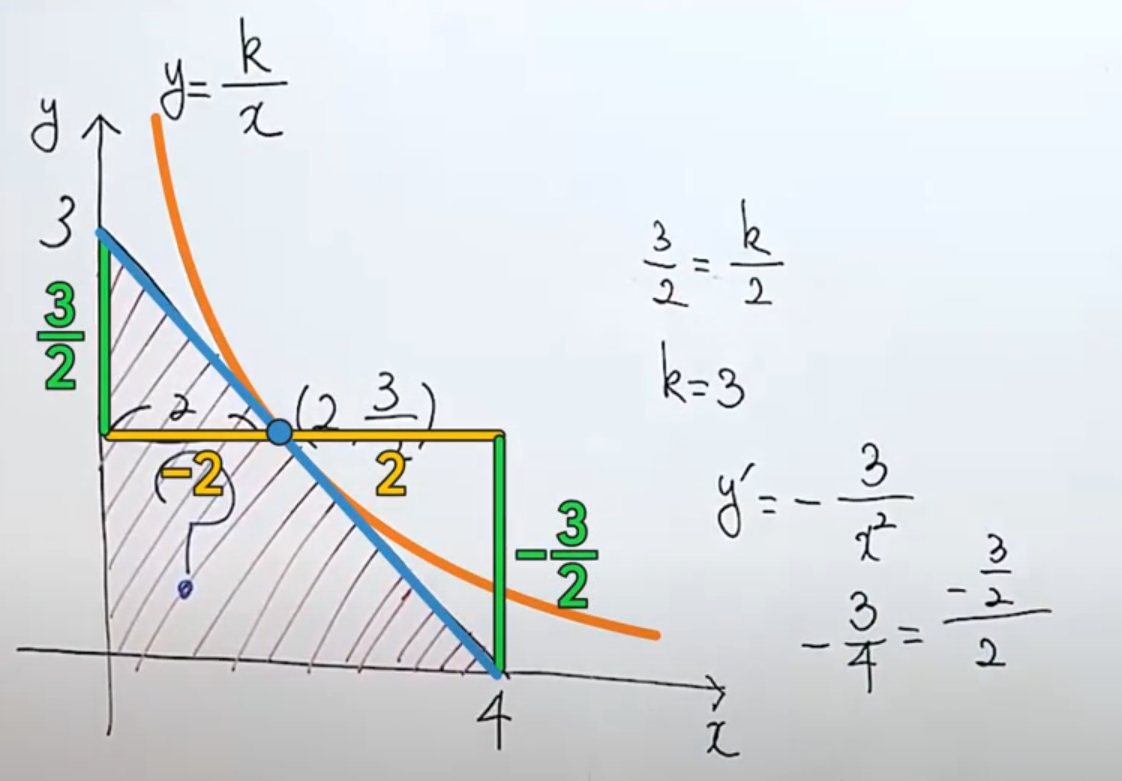 y = k/x
y
3
3/2
2
(2, 3/2)
-2
2
?
-3/2
4
x
3/2 = k/2
k=3
y' = - 3/x²
- 3/4 = (- 3/2)/2